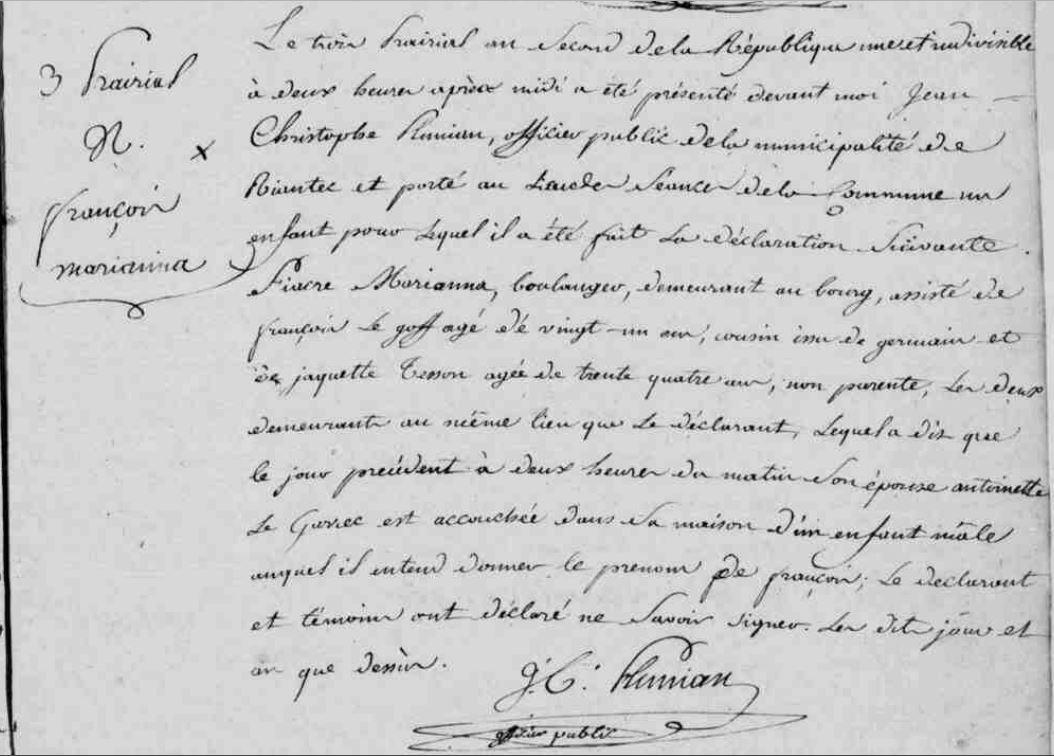 3 Prairial
N.
x
françois
marianna
Le trois Prairial an Second de la République une et indivisible
à deux heures après midi a été présenté devant moi Jean
Christophe officier public de la municipalité de
Riantec et porté au Lieu des Séances de la Commune un
enfant pour Lequel il a été fait La déclaration Suivante.
Fiacre Marianna, boulanger, demeurant au bourg, assisté de
françois Le goff agé dé vingt-un ans, cousin issu de germain et
de jaquette Tesson agée de trente quatre ans, non parente, Les deux
demeurants au même lieu que Le déclarant, Lequel a dit que
le jour précédent à deux heures du matin Son épouse antoinette
Le Gorrec est accouchée dans Sa maison d'un enfant mâle
auquel il entend donner le prenom de françois; Le declarant
et témoins ont déclaré ne Savoir signer. Les dits jour et
an que dessus.
J. C.
officier public